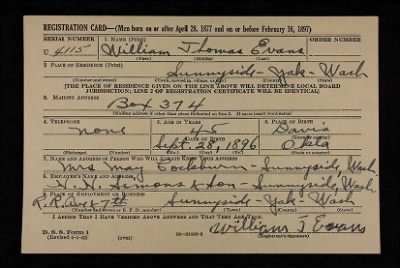 REGISTRATION CARD—(Men born on or after April 28, 1877 and on or before February 16, 1897)
SERIAL NUMBER 1. NAME (Print) ORDER NUMBER
U 4115 William Thomas Evans
(First) (Middle) (Last)
2. PLACE OF RESIDENCE (Print)
Sunnyside - Yak - Wash
(Number and street) (Town, township, village, or city) (County) (State)
[THE PLACE OF RESIDENCE GIVEN ON THE LINE ABOVE WILL DETERMINE LOCAL BOARD
JURISDICTION; LINE 2 OF REGISTRATION CERTIFICATE WILL BE IDENTICAL]
3. MAILING ADDRESS
Box 374
(Mailing address if other than place indicated on line 2. If same insert word same)
4. TELEPHONE 5. AGE IN YEARS 6. PLACE OF BIRTH
none 45 Davis
DATE OF BIRTH
Sept. 28, 1896 Okla
(Exchange) (Number) (Mo.) (Day) (Yr.) (State or country)
7. NAME AND ADDRESS OF PERSON WHO WILL ALWAYS KNOW YOUR ADDRESS
Mrs May Cockburn - Sunnyside, Wash
8. EMPLOYER'S NAME AND ADDRESS
Simons & Son - Sunnyside, Wash.
9. PLACE OF EMPLOYMENT OR BUSINESS
R.R. Ave & 7th Sunnyside - Yak - Wash
(Number and street or R. F. D. number) (Town) (County) (State)
I AFFIRM THAT I HAVE VERIFIED ABOVE ANSWERS AND THAT THEY ARE TRUE.
D. S. S. Form 1
(Revised 4-1-42) (over) 16-21630-2
William T Evans
(Registrant's signature)